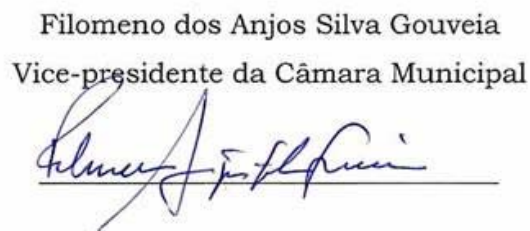 Filomeno dos Anjos Silva Gouveia
Vice-presidente da Câmara Municipal